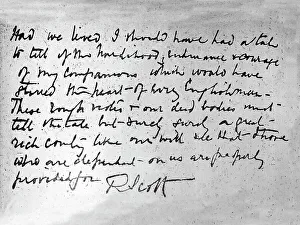 Had we lived I should have had a tale
to tell of the hardihood, endurance & courage
of my companions which would have
stirred the heart of every Englishman.
These rough notes & our dead bodies must
tell the tale but surely surely a great
rich country like ours will see that those
who are dependent on us are properly
provided for R. Scott